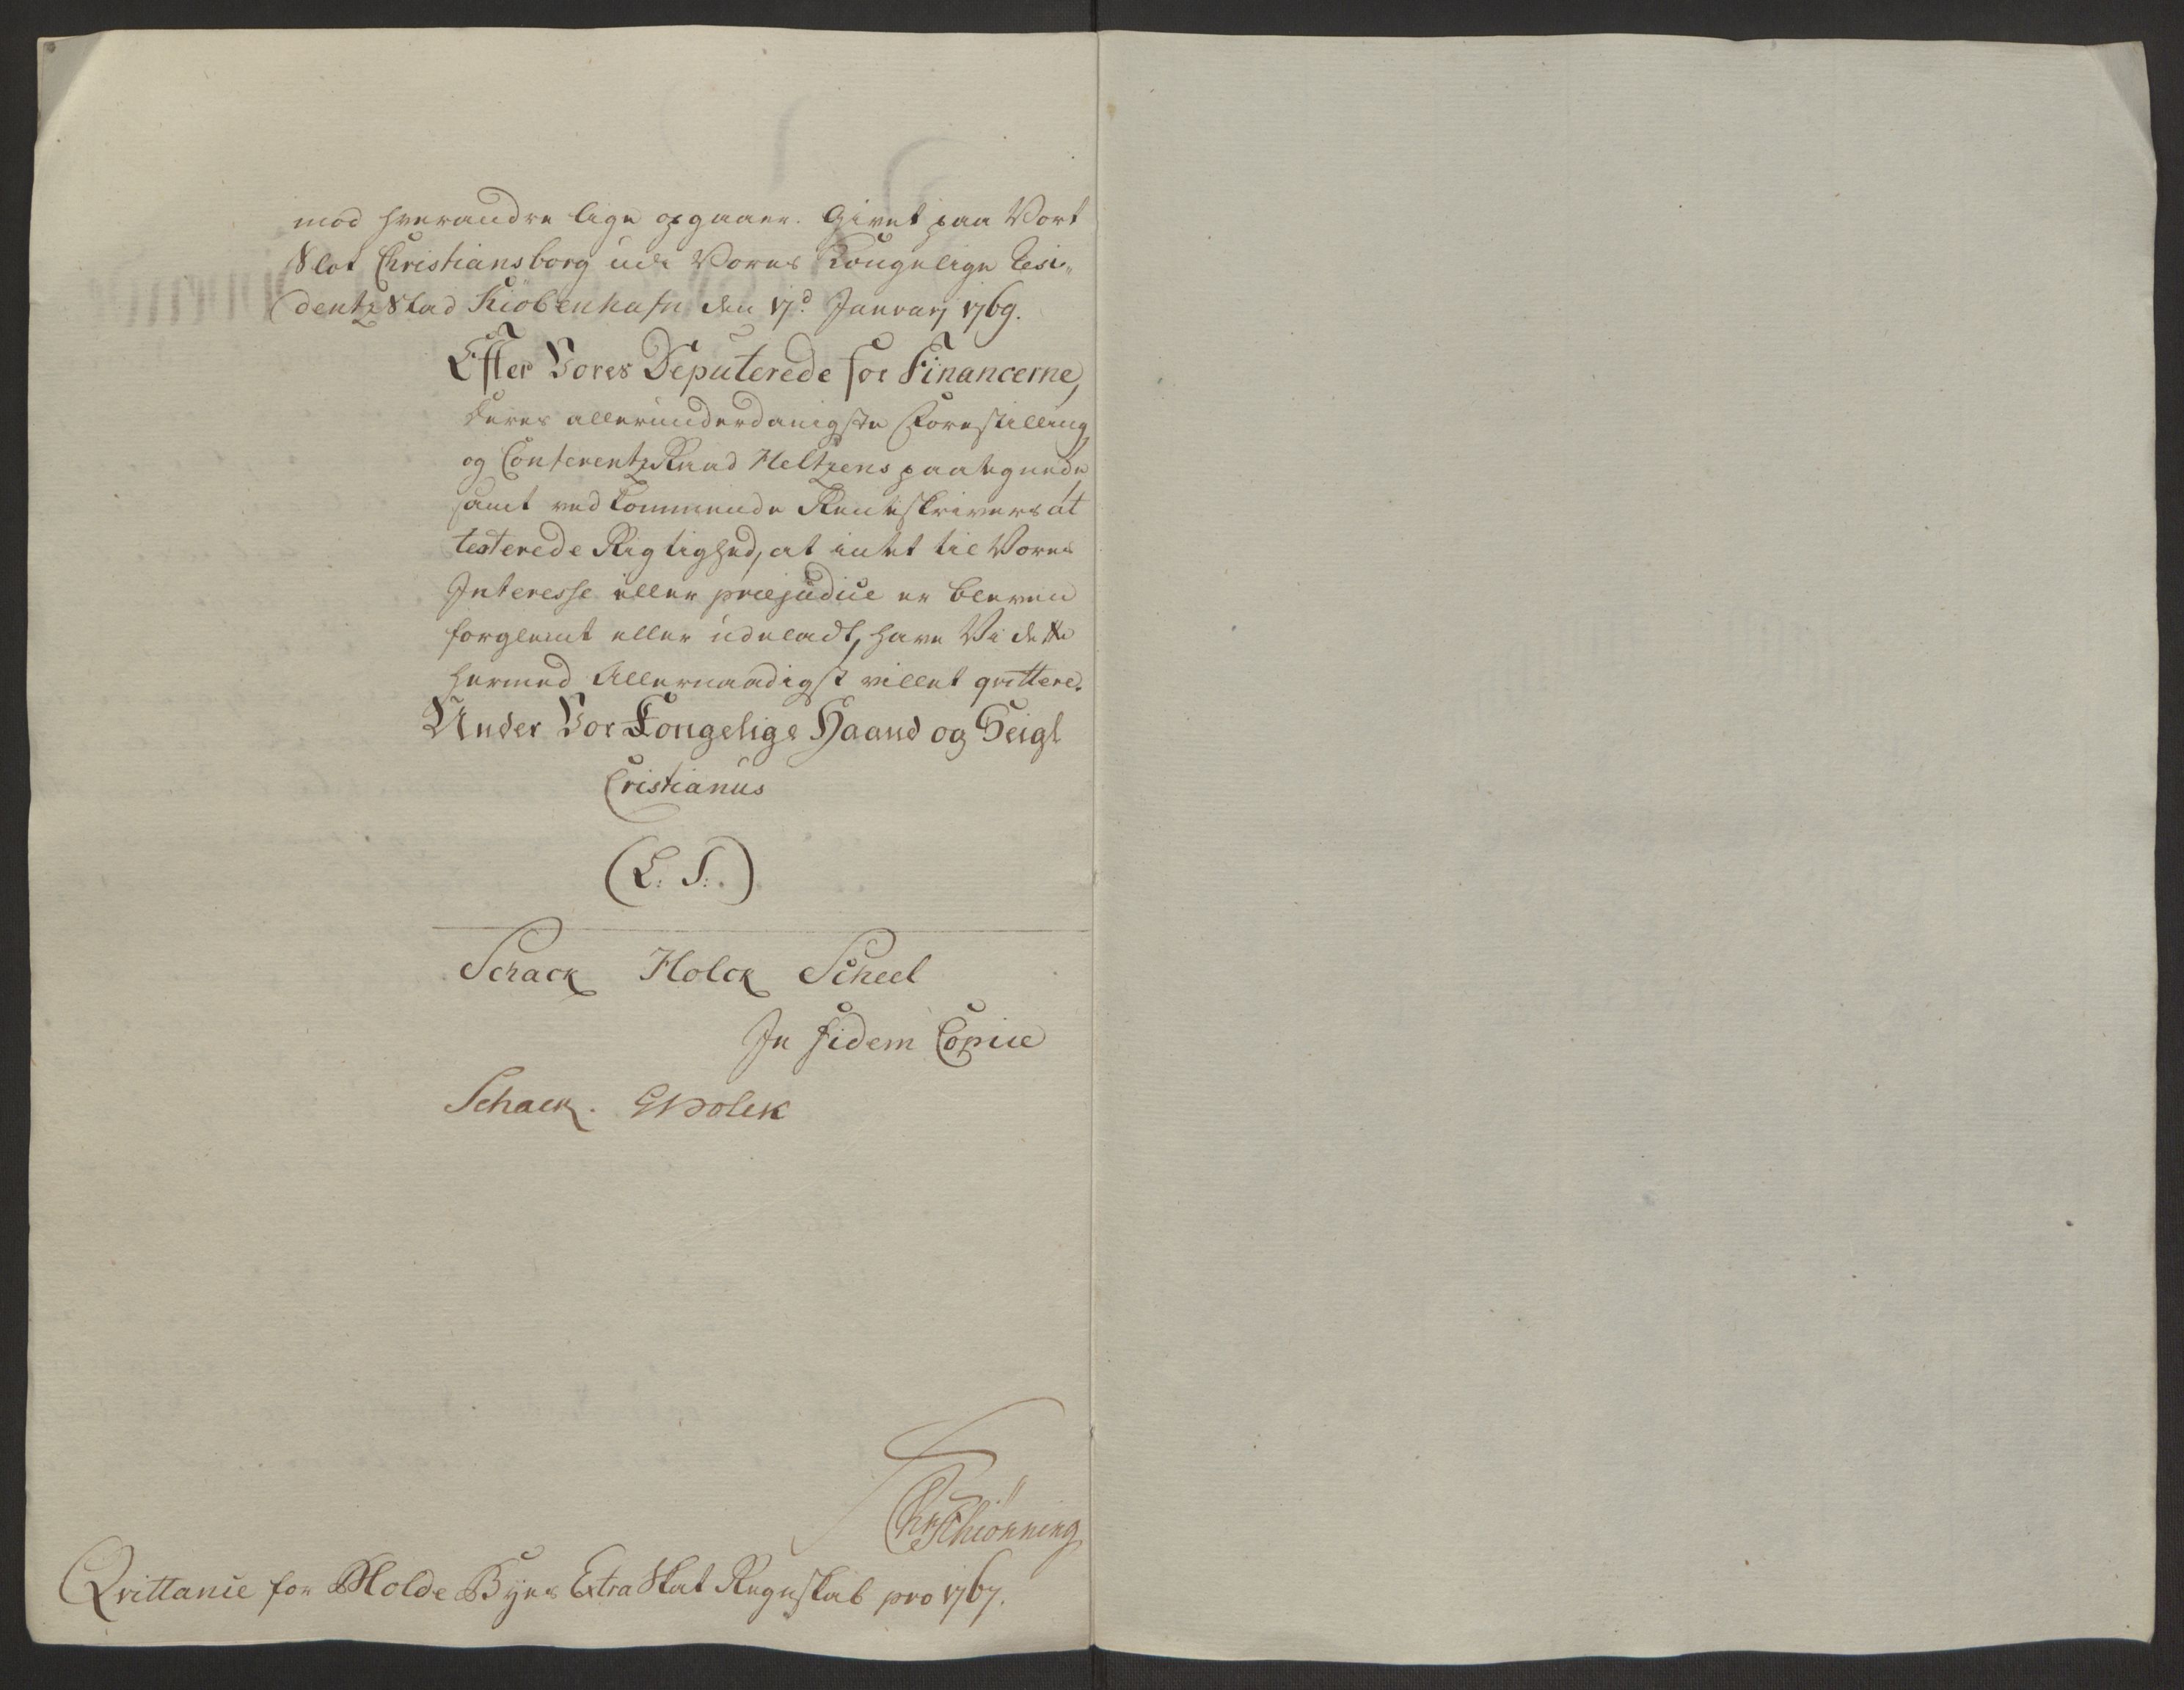 mod hverandre lige opgaaer. Givet paa Vort
Slot Christiansborg udi Vores Kongelige Resi„
dentz Stad Kiöbenhafn den 17d. Januarj 1769.
Efter Vores Deputerede for Financerne,
deres allerunderdanigste Forestilling
og Conferentz Raad Heltzens paategnede
samt ved kommende Renteskrivers at
testerede Rigtighed, at intet til Vores
Interesse eller præjudice er bleven
forglemt eller udeladt, have Vi dette
hermed Allernaadigst villet qvittere.
Under Vor Kongelige Haand og Seigl
Cristianus
(L: S:.)
Schack Holck Scheel
In fidem Copiæ
Schack. Holck
Schiönning
Qvittanie for Molde Byes Extra Skat Regnskab pro 1767.